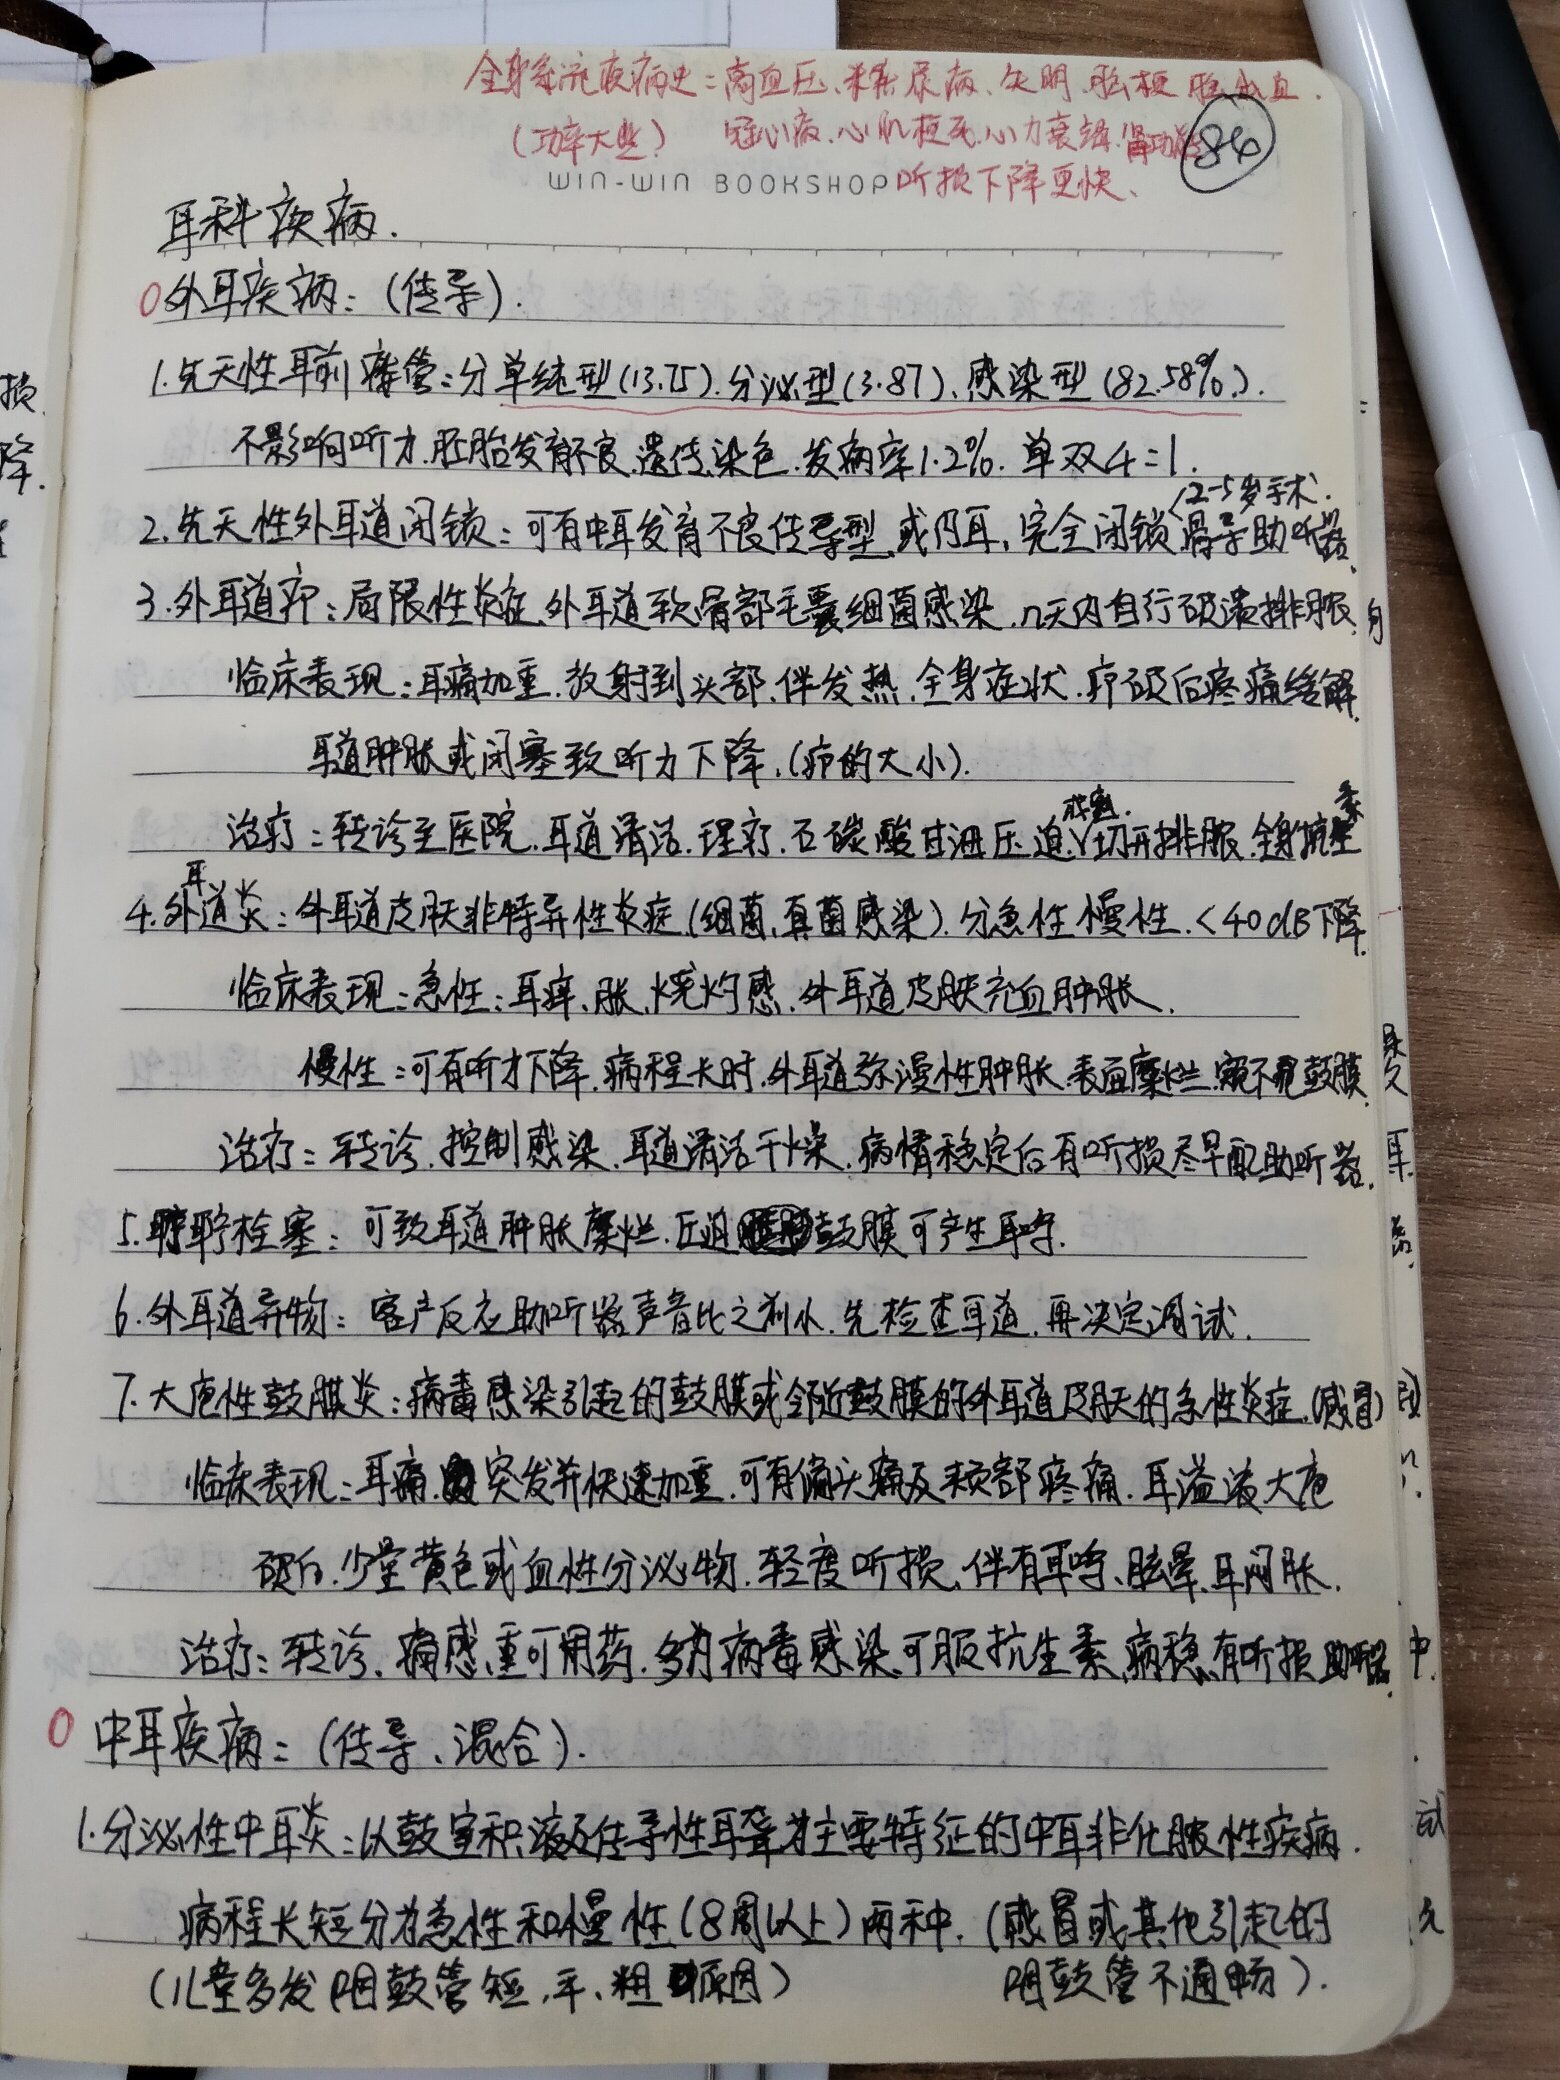 全身系统疾病史：高血压、糖尿病、失明、脑梗 脑出血.
(功率大些) 冠心病、心肌梗死、心力衰竭、肾功能
84
WIN-WIN BOOKSHOP 听损下降更快、
耳科疾病.
外耳疾病：(传导).
1.先天性耳前瘘管：分单纯型(13.75).分泌型(3.87)、感染型(82.58%).
不影响听力.胚胎发育不良.遗传.染色.发病率1.2%. 单双4=1.
<2-5岁手术.
2.先天性外耳道闭锁：可有中耳发育不良传导型.或内耳.完全闭锁 骨导助听器.
3.外耳道疖：局限性炎症.外耳道软骨部毛囊细菌感染.几天内自行破溃排脓.
临床表现：耳痛加重.放射到头部.伴发热.全身症状.疖破后疼痛缓解.
耳道肿胀或闭塞致听力下降.(疖的大小).
成熟.
治疗：转诊至医院.耳道清洁.理疗.石碳酸甘油压迫.切开排脓.全身抗生素
4.外耳道炎：外耳道皮肤非特异性炎症(细菌.真菌感染).分急性慢性.<40dB下降.
临床表现：急性：耳痒、胀、烧灼感.外耳道皮肤充血肿胀.
慢性：可有听力下降.病程长时.外耳道弥漫性肿胀.表面糜烂.窥不见鼓膜.
治疗：转诊.控制感染.耳道清洁干燥.病情稳定后有听损尽早配助听器.
5.耵聍栓塞：可致耳道肿胀糜烂.压迫鼓膜可产生耳鸣.
6.外耳道异物：客户反应助听器声音比之前小.先检查耳道.再决定调试.
7.大疱性鼓膜炎：病毒感染引起的鼓膜或邻近鼓膜的外耳道皮肤的急性炎症.(感冒)
临床表现：耳痛.突发并快速加重.可有偏头痛及颊部疼痛.耳溢液大疱
破后.少量黄色或血性分泌物.轻度听损.伴有耳鸣、眩晕、耳闷胀.
治疗：转诊、痛感重可用药.多为病毒感染.可服抗生素.病稳.有听损 助听器.
中耳疾病：(传导、混合).
1.分泌性中耳炎：以鼓室积液及传导性耳聋为主要特征的中耳非化脓性疾病.
病程长短分为急性和慢性(8周以上)两种.(感冒或其他引起的
(儿童多发 咽鼓管短.平、粗 原因) 咽鼓管不通畅).